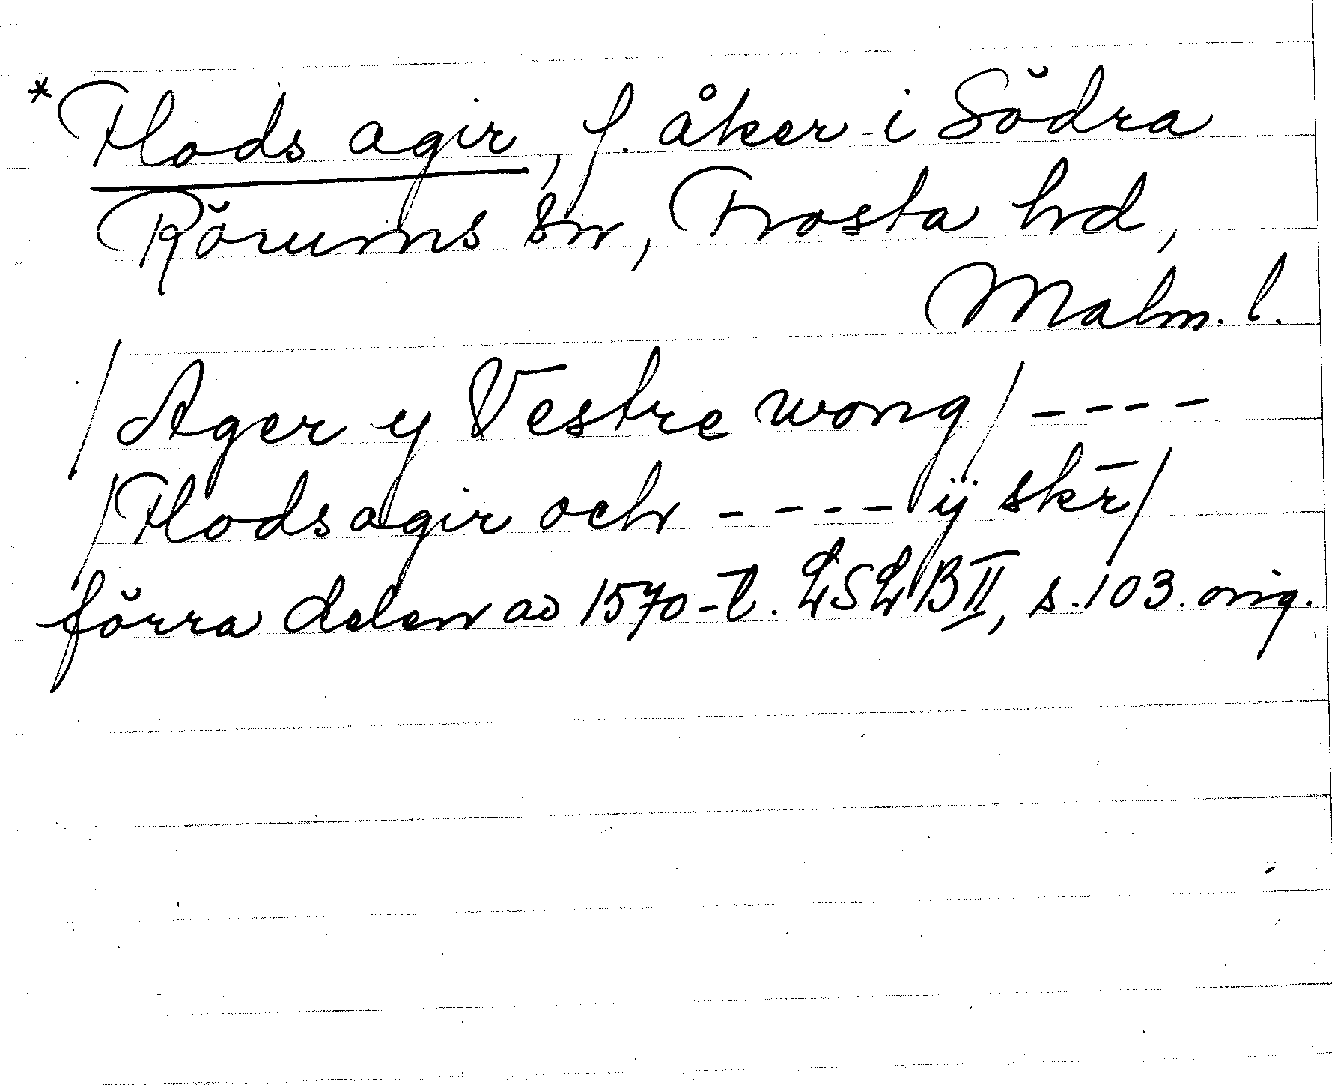 *Flods agir, f. åker i Södra
Rörums sn, Frosta hd,
Malm. l.
/Ager y Vestre wong/ ----
/Flods agir och ---- ÿ skr̄/
förra delen av 1570-t. LSLB II, s. 103. orig.